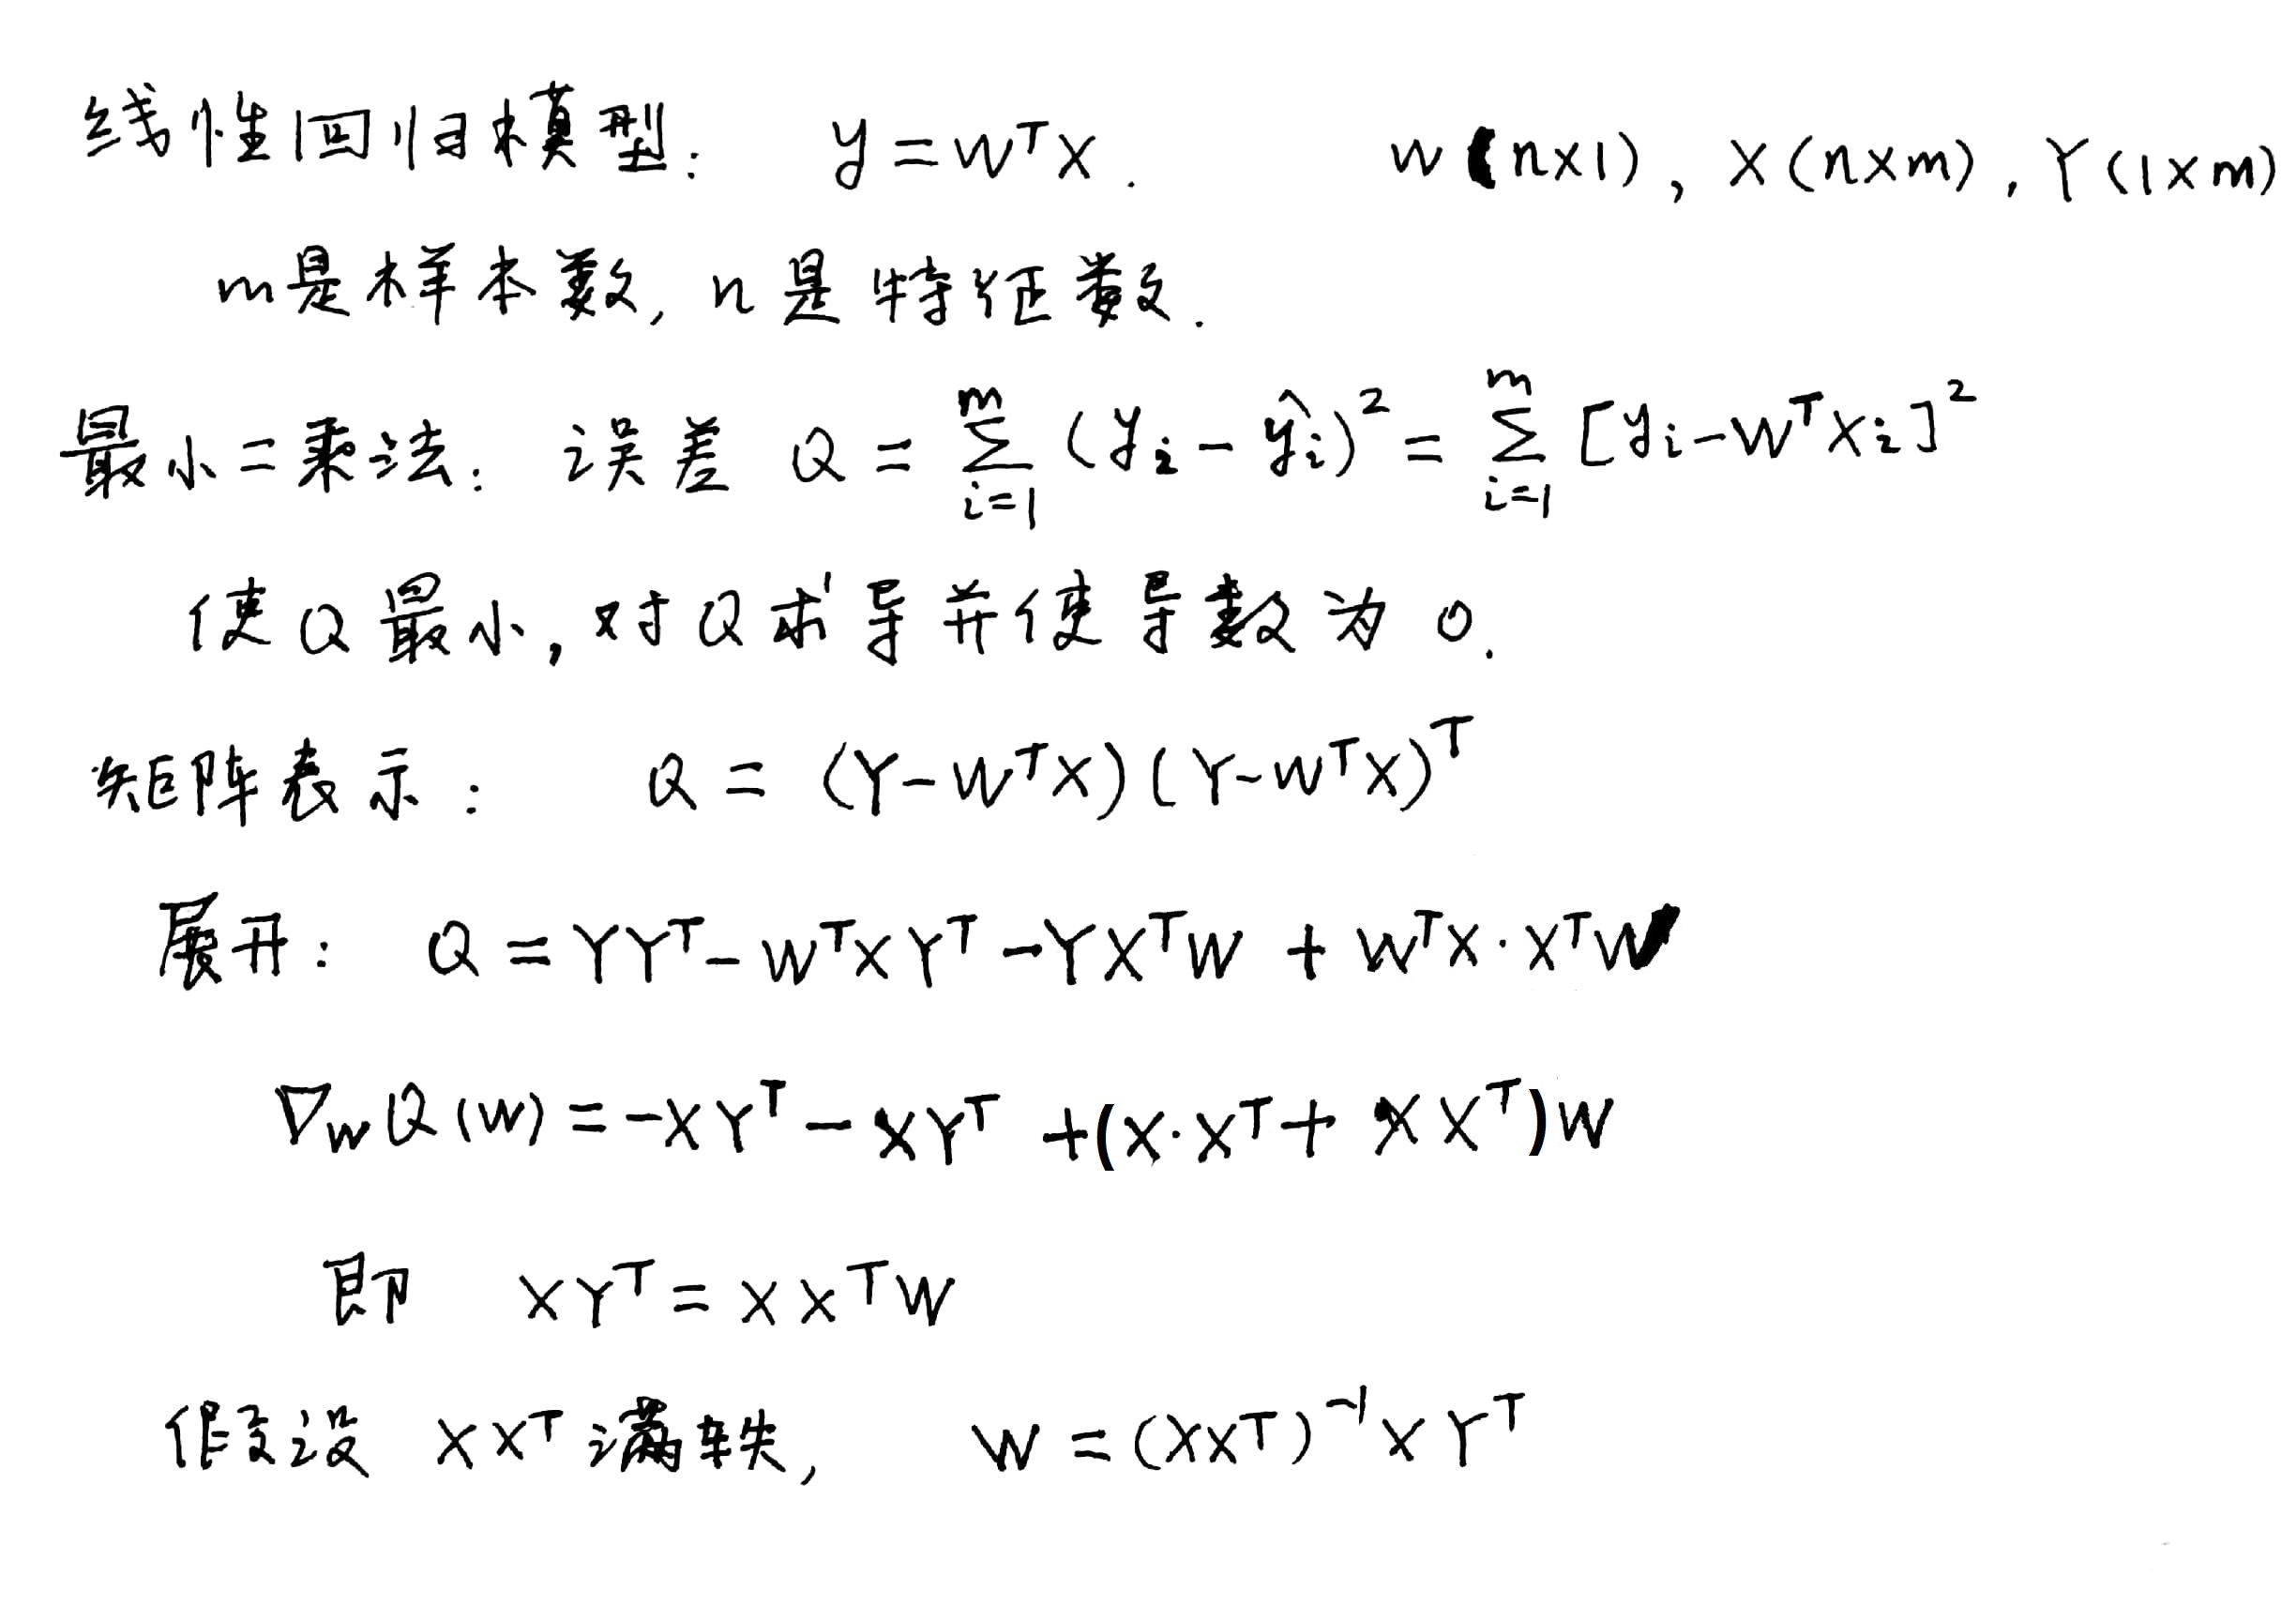 线性回归模型: y = Wᵀx. W(n×1), X(n×m), Y(1×m)
m是样本数, n是特征数.
最小二乘法: 误差 Q = ∑_{i=1}^{m} (yᵢ - ŷᵢ)² = ∑_{i=1}^{m} [yᵢ - WᵀXᵢ]²
使Q最小, 对Q求导并使导数为0.
矩阵表示: Q = (Y-WᵀX)(Y-WᵀX)ᵀ
展开: Q = YYᵀ - WᵀXYᵀ - YXᵀW + WᵀX·XᵀW
∇_W Q(W) = -XYᵀ - XYᵀ + (X·Xᵀ + XXᵀ)W
即 XYᵀ = XXᵀW
假设 XXᵀ满轶, W = (XXᵀ)⁻¹XYᵀ